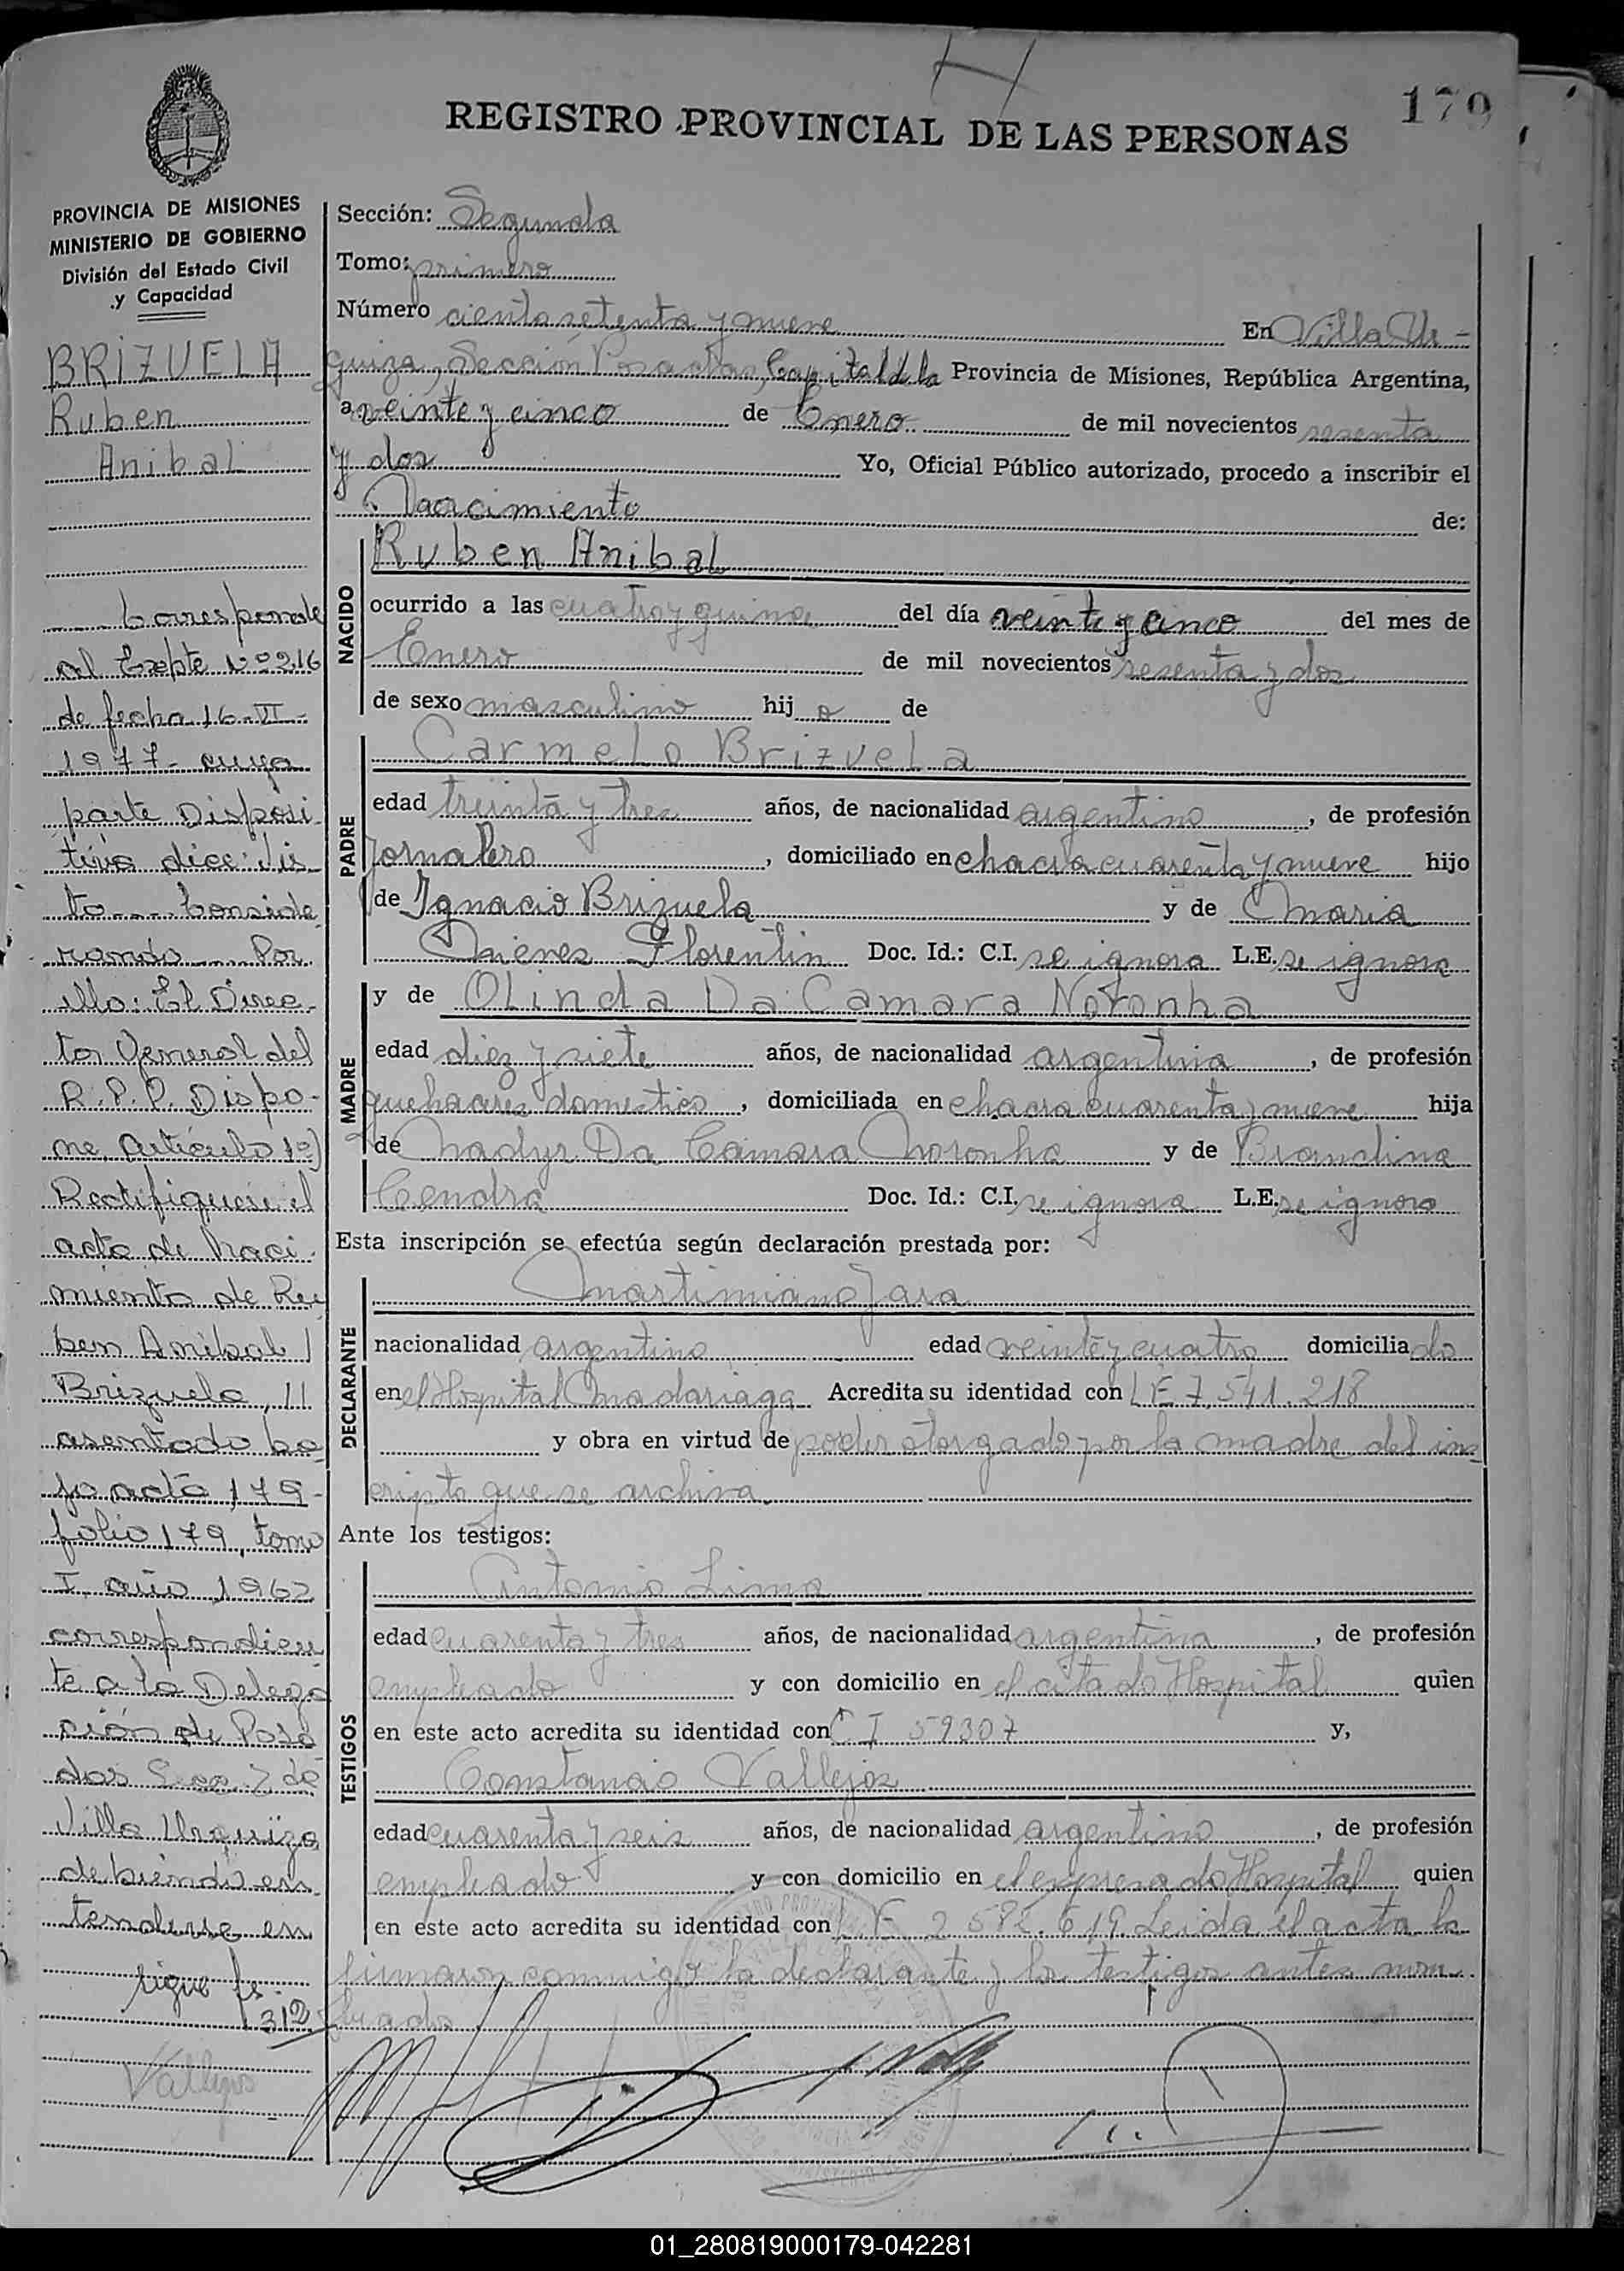 179
REGISTRO PROVINCIAL DE LAS PERSONAS
PROVINCIA DE MISIONES
MINISTERIO DE GOBIERNO
División del Estado Civil
y Capacidad
BRIZUELA
Ruben
Anibal
Corresponde
al Expte Nº 216
de fecha 16-VI-
1977- cuya
parte Disposi
tiva dice: Vis
to... Conside
rando... Por
ello: El Direc-
tor General del
R.P.P. Dispo-
ne Artículo 1º)
Rectifiquese el
acta de Naci-
miento de Ru
ben Anibal
Brizuela, 11
asentado ba
jo acta 179-
folio 179, tomo
I año 1962
correspondien
te a la Delega
ción de Posa
das Secc. 2 de
Villa Urquiza
debiendo en
tenderse en
sigue fs.
312
Vallejos
Sección: Segunda
Tomo: primero
Número ciento setenta y nueve En Villa Ur-
quiza, Sección Posadas, Capital de la Provincia de Misiones, República Argentina,
a veinte y cinco de Enero de mil novecientos sesenta
y dos Yo, Oficial Público autorizado, procedo a inscribir el
Nacimiento de:
NACIDO
Ruben Anibal
ocurrido a las cuatro y quince del día veinte y cinco del mes de
Enero de mil novecientos sesenta y dos
de sexo masculino hij o de
PADRE
Carmelo Brizuela
edad treinta y tres años, de nacionalidad argentino, de profesión
Jornalero, domiciliado en chacra cuarenta y nueve hijo
de Ignacio Brizuela y de Maria
Nieves Florentin Doc. Id.: C.I. se ignora L.E. se ignora
MADRE
y de Olinda Da Camara Noronha
edad diez y siete años, de nacionalidad argentina, de profesión
quehaceres domestico, domiciliada en chacra cuarenta y nueve hija
de Nadyr Da Camara Noronha y de Brandina
Cendra Doc. Id.: C.I. se ignora L.E. se ignora
Esta inscripción se efectúa según declaración prestada por:
DECLARANTE
Martimiano Jara
nacionalidad argentino edad veinte y cuatro domicilia do
en el Hospital Madariaga Acredita su identidad con L E 7.541.218
y obra en virtud de poder otorgado por la madre del ins
cripto que se archiva.
Ante los testigos:
TESTIGOS
Antonio Lima
edad cuarenta y tres años, de nacionalidad argentina, de profesión
empleado y con domicilio en el citado Hospital quien
en este acto acredita su identidad con C I 59307 y,
Constancio Vallejos
edad cuarenta y seis años, de nacionalidad argentino, de profesión
empleado y con domicilio en el expresado Hospital quien
en este acto acredita su identidad con L E 2 582.619. Leida el acta la
firmaron conmigo la declarante y los testigos antes nom
brado
01_280819000179-042281